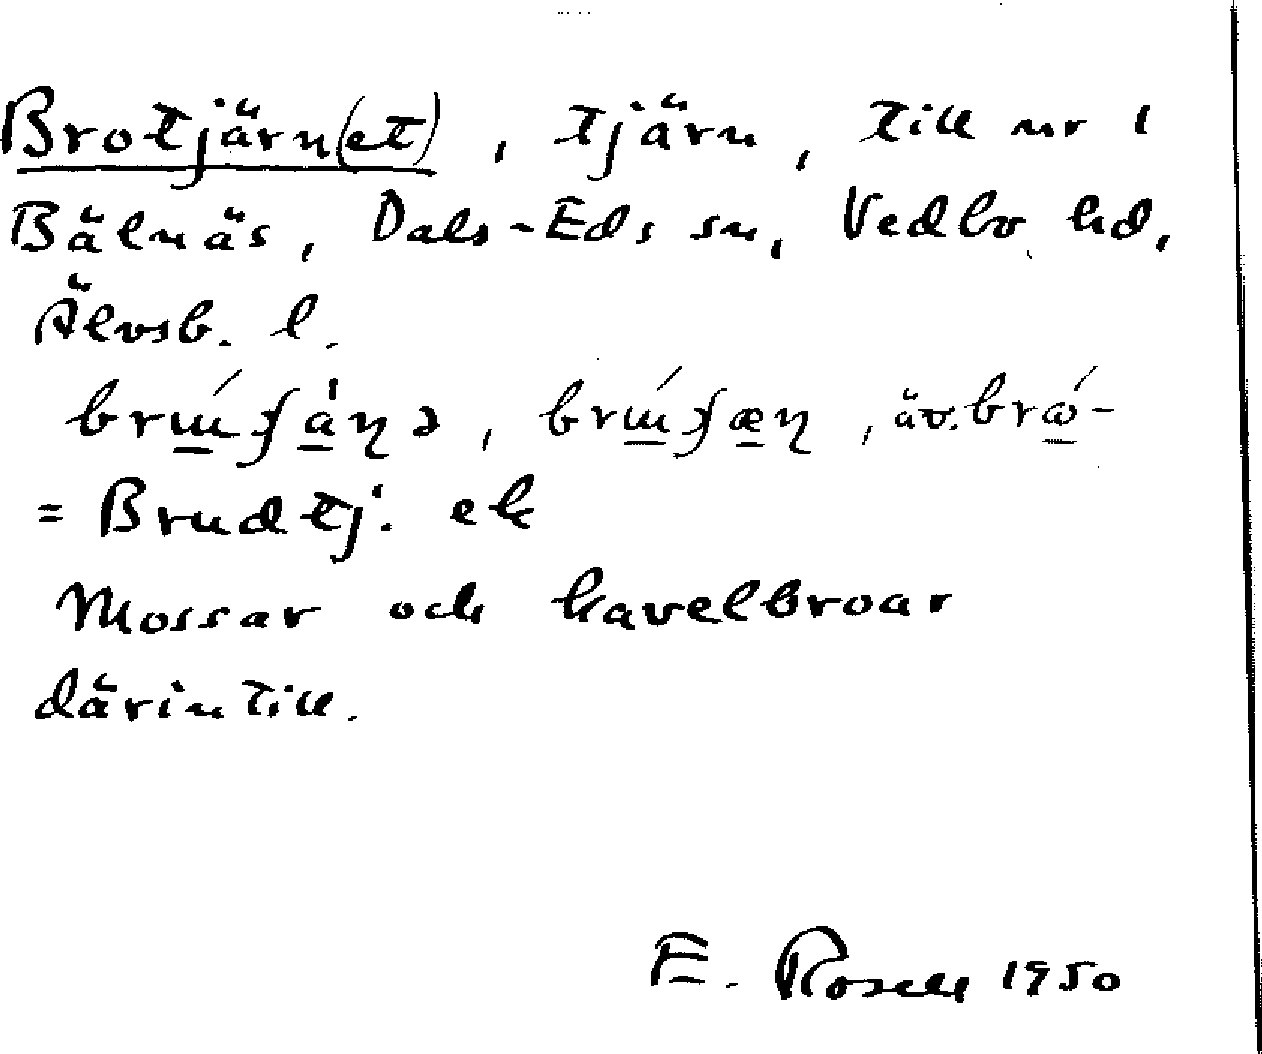 Brotjärn(et), tjärn, till nr 1
Bälnäs, Dals-Eds sn, Vedbo hd,
Älvsb. l.
, äv.
= Brudtj. ek
Mossar och kavelbroar
därintill.
E. Rosell 1950